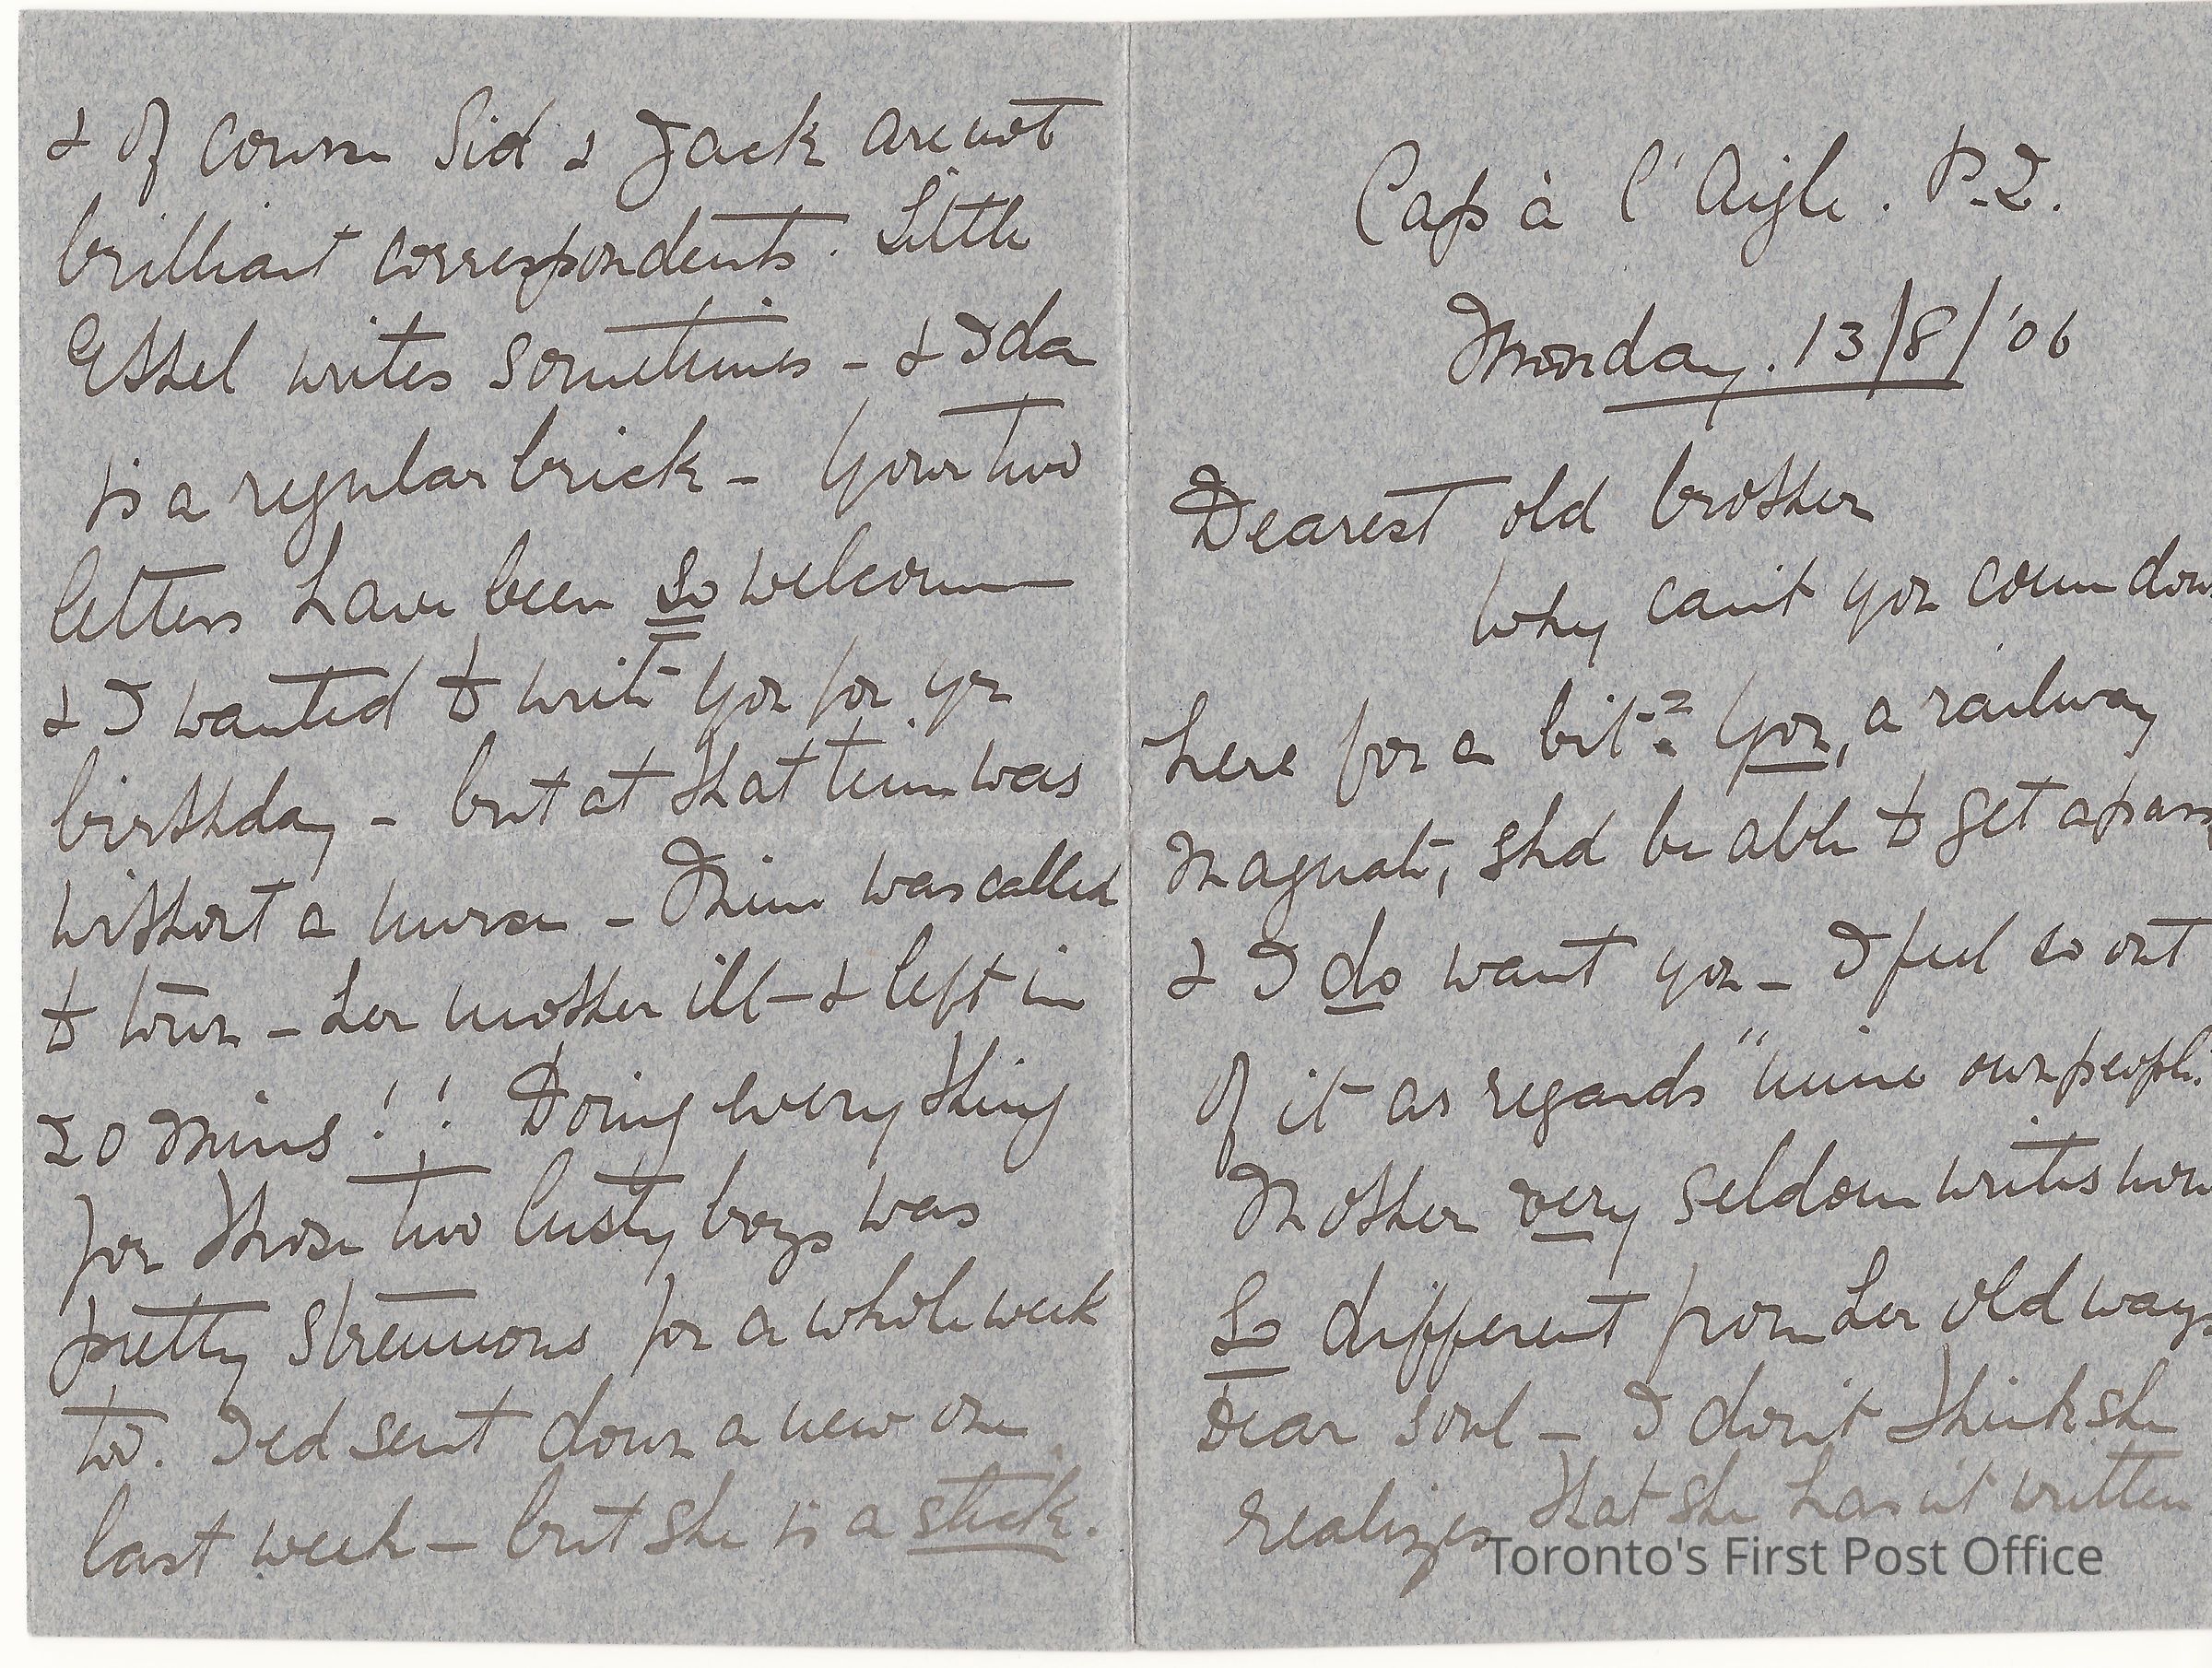 Cap à l'Aigle. P.Q.
Monday. 13/8/'06
Dearest old brother
Why can't you come down
here for a bit? You, a railway
magnate, shd be able to get a pass
& I do want you – I feel so out
of it as regards "mine own people.
Mother very seldom writes now
So different from her old ways
Dear soul – I don't think she
realizes that she hasn't written
& of course Sid & Jack are not
brilliant correspondents. Little
Ethel writes sometimes – & Ida
is a regular brick – Your two
letters have been so welcome
& I wanted to write you for yr
birthday – but at that time was
without a nurse – Mine was called
to town – her mother ill – & left in
20 mins!! Doing everything
for those two lusty boys was
pretty strenuous for a whole week
too. Ted sent down a new one
last week – but she is a stick.
Toronto's First Post Office